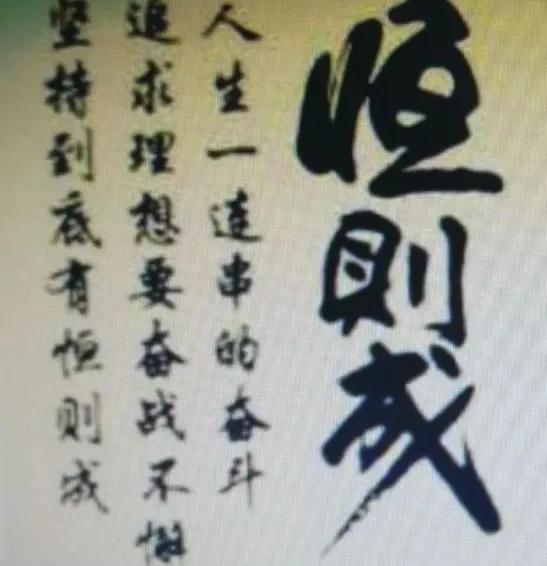 恒則成
人生一连串的奋斗
追求理想要奋战不懈
坚持到底有恒则成